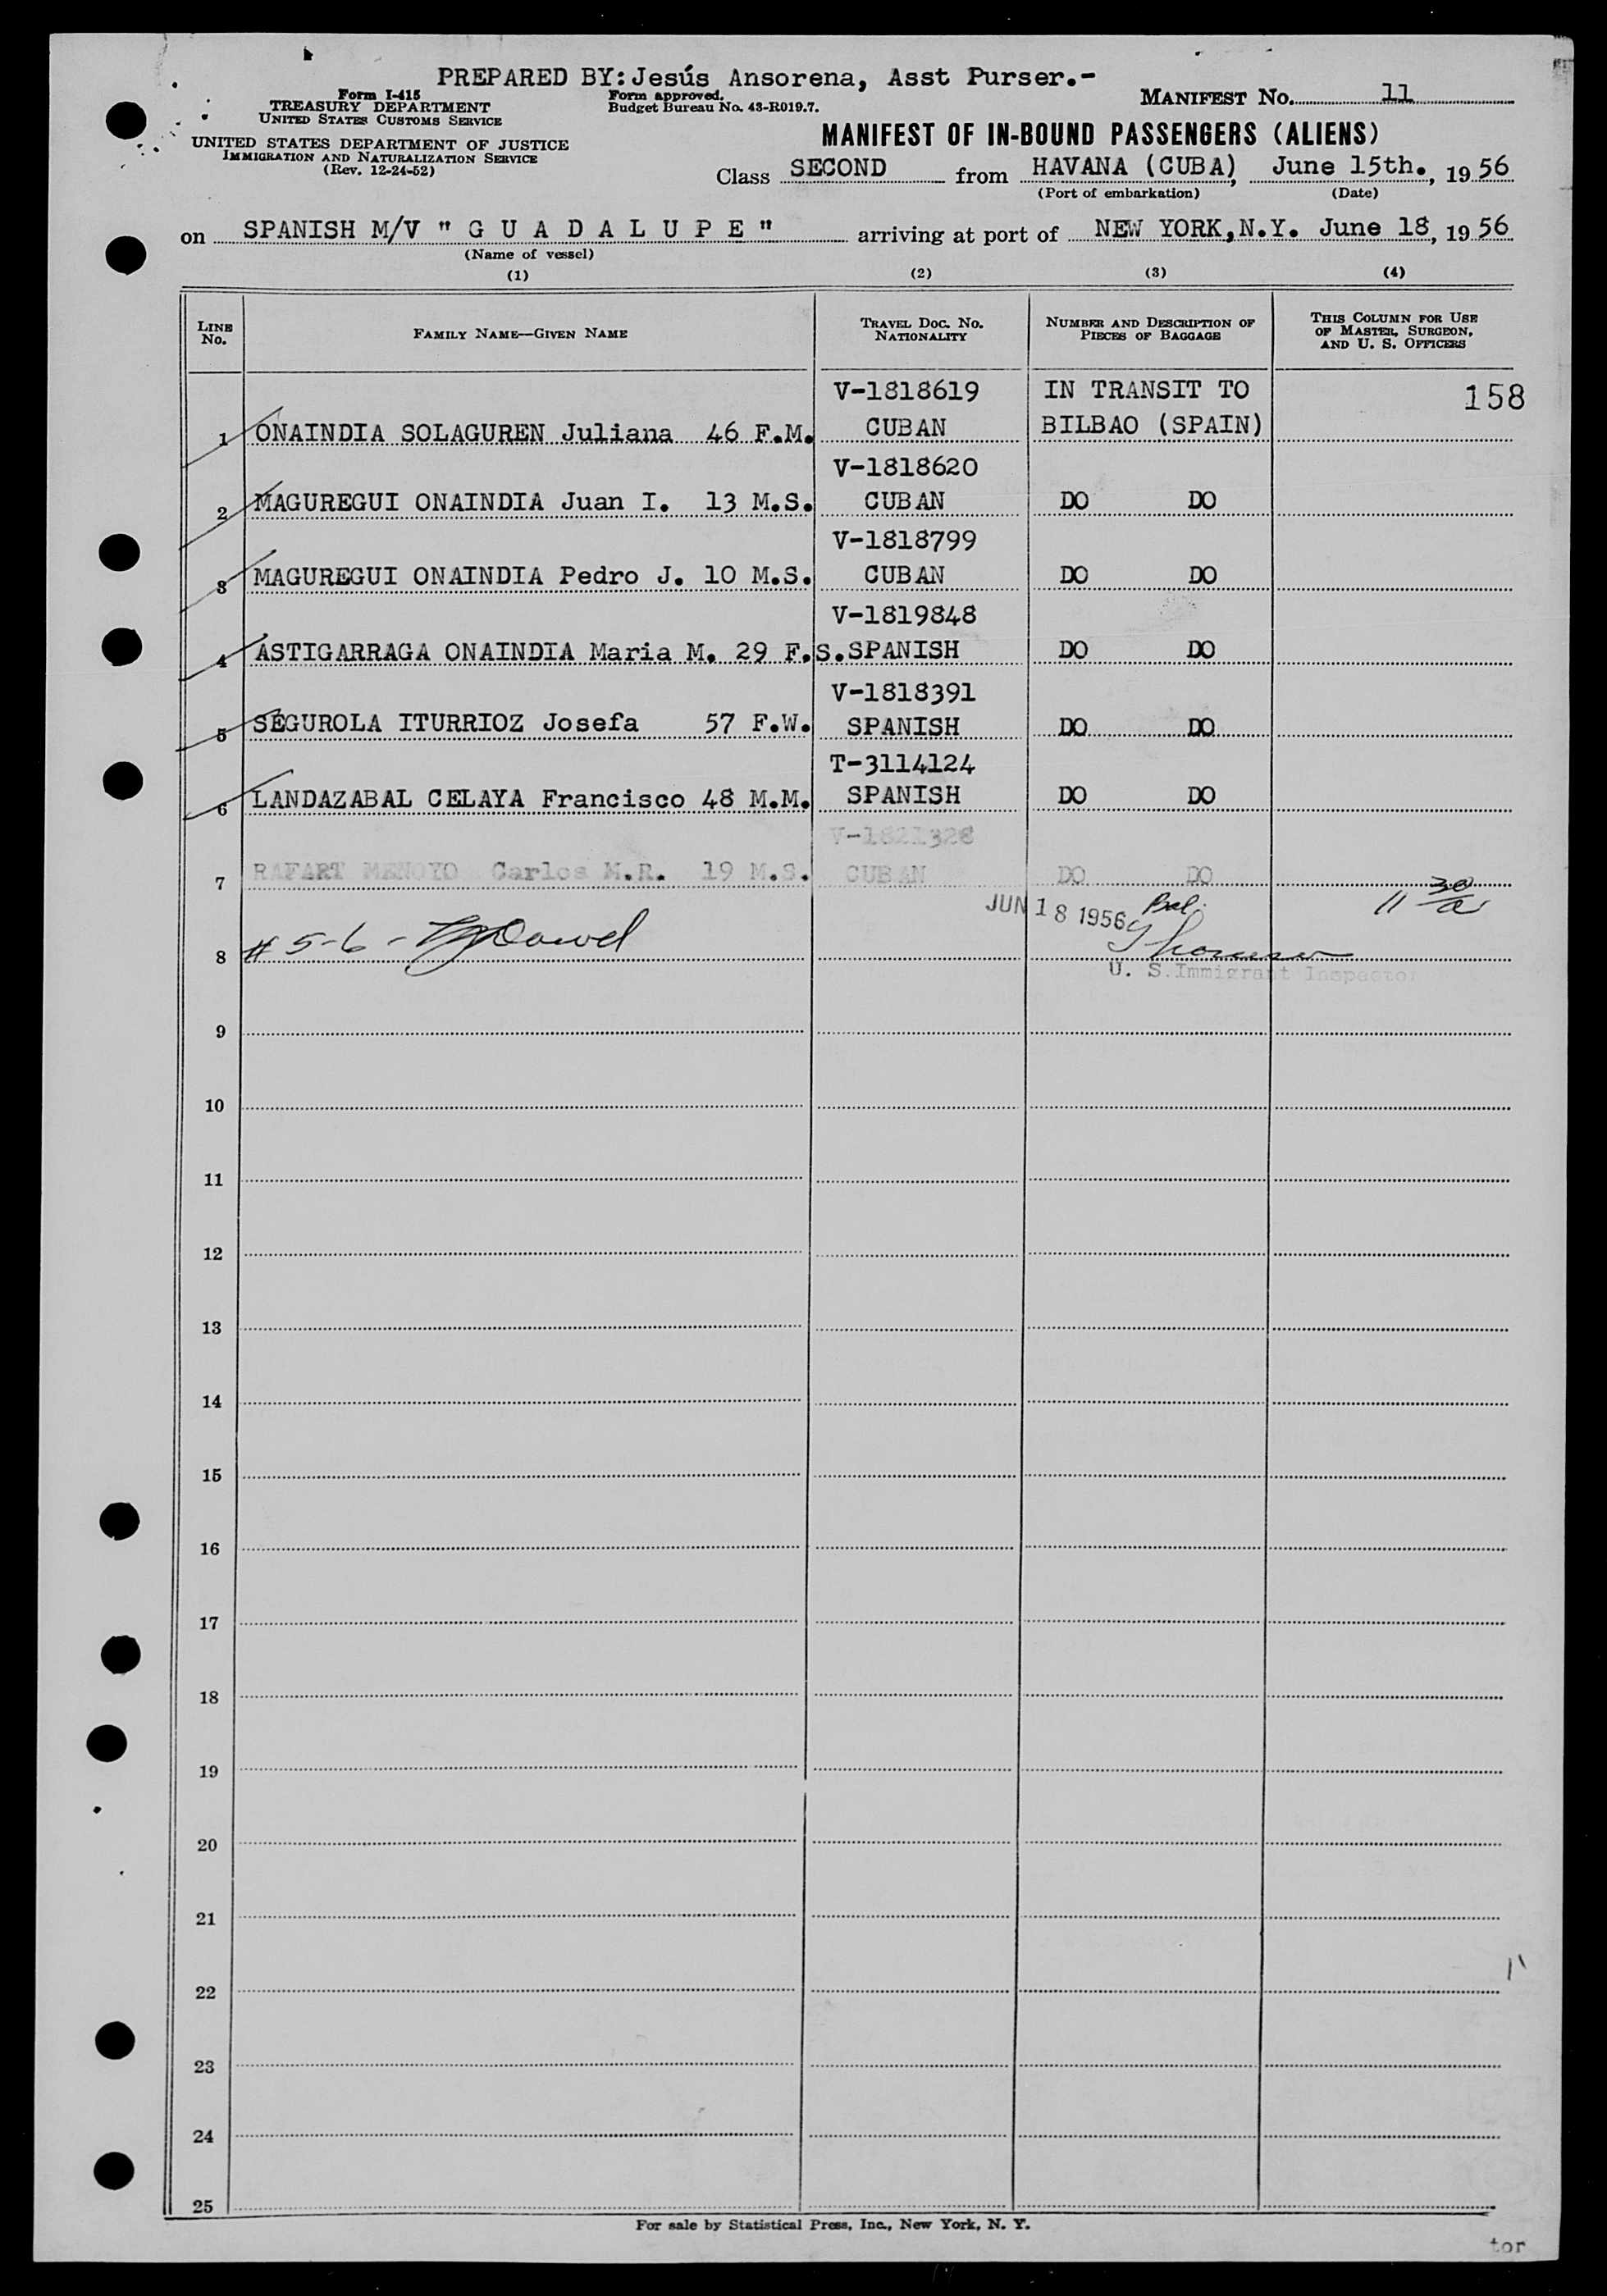 PREPARED BY: Jesús Ansorena, Asst Purser.-
Form I-415
TREASURY DEPARTMENT
UNITED STATES CUSTOMS SERVICE
Form approved.
Budget Bureau No. 43-R019.7.
MANIFEST NO. 11
UNITED STATES DEPARTMENT OF JUSTICE
IMMIGRATION AND NATURALIZATION SERVICE
(Rev. 12-24-52)
MANIFEST OF IN-BOUND PASSENGERS (ALIENS)
Class SECOND from HAVANA (CUBA), June 15th., 1956
(Port of embarkation) (Date)
on SPANISH M/V " G U A D A L U P E " arriving at port of NEW YORK, N.Y. June 18, 1956
(Name of vessel)
(1) (2) (3) (4)
LINE NO.
FAMILY NAME—GIVEN NAME
TRAVEL DOC. NO.
NATIONALITY
NUMBER AND DESCRIPTION OF
PIECES OF BAGGAGE
THIS COLUMN FOR USE
OF MASTER, SURGEON,
AND U. S. OFFICERS
V-1818619 IN TRANSIT TO 158
1 ONAINDIA SOLAGUREN Juliana 46 F.M. CUBAN BILBAO (SPAIN)
V-1818620
2 MAGUREGUI ONAINDIA Juan I. 13 M.S. CUBAN DO DO
V-1818799
3 MAGUREGUI ONAINDIA Pedro J. 10 M.S. CUBAN DO DO
V-1819848
4 ASTIGARRAGA ONAINDIA Maria M. 29 F.S. SPANISH DO DO
V-1818391
5 SEGUROLA ITURRIOZ Josefa 57 F.W. SPANISH DO DO
T-3114124
6 LANDAZABAL CELAYA Francisco 48 M.M. SPANISH DO DO
V-1821328
7 RAFART MENOYO Carlos M.R. 19 M.S. CUBAN DO DO
JUN 18 1956 Bal. 11 30/a
8 # 5-6 -
U. S. Immigrant Inspector
9
10
11
12
13
14
15
16
17
18
19
20
21
22
23
24
25
For sale by Statistical Press, Inc., New York, N. Y.
tor